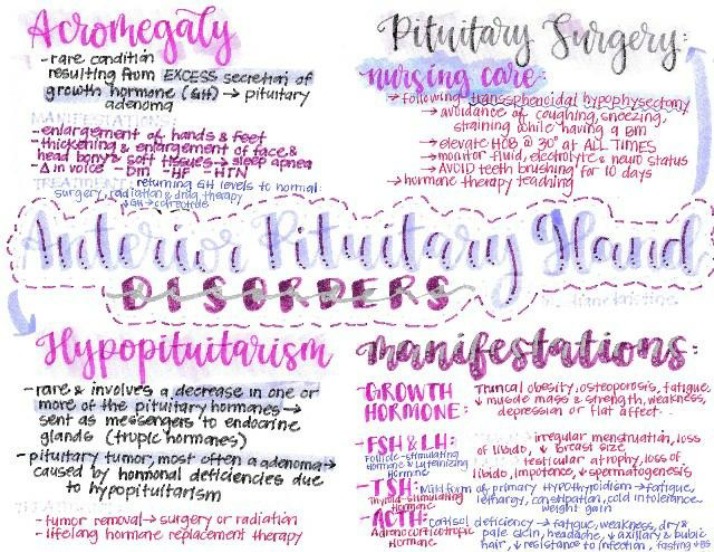 Acromegaly
- rare condition
resulting from EXCESS secretion of
growth hormone (GH) → pituitary
adenoma
MANIFESTATIONS:
- enlargement of hands & feet
- thickening & enlargement of face &
head bony & soft tissues → sleep apnea
- Δ in voice - DM - HF - HTN
TREATMENT: returning GH levels to normal:
surgery, radiation & drug therapy
↓GH → octreotide
Pituitary Surgery:
nursing care:
→ following transsphenoidal hypophysectomy
→ avoidance of coughing, sneezing,
straining while having a BM
→ elevate HOB @ 30° at ALL TIMES
→ monitor fluid, electrolyte & neuro status
→ AVOID teeth brushing for 10 days
→ hormone therapy teaching
Anterior Pituitary Gland
DISORDERS
Hypopituitarism
- rare & involves a decrease in one or
more of the pituitary hormones →
sent as messengers to endocrine
glands (tropic hormones)
- pituitary tumor, most often a adenoma →
caused by hormonal deficiencies due
to hypopituitarism
TREATMENT:
- tumor removal → surgery or radiation
- lifelong hormone replacement therapy
manifestations:
- GROWTH HORMONE: truncal obesity, osteoporosis, fatigue,
↓ muscle mass & strength, weakness,
depression or flat affect
- FSH & LH: irregular menstruation, loss
Follicle-stimulating Hormone & Luteinizing Hormone
of libido, ↓ breast size
testicular atrophy, loss of
libido, impotence, ↓ spermatogenesis
- TSH: mild form of primary HYPOthyroidism → fatigue,
Thyroid-stimulating Hormone
lethargy, constipation, cold intolerance
weight gain
- ACTH: cortisol deficiency → fatigue, weakness, dry &
Adrenocorticotropic Hormone
pale skin, headache, ↓ axillary & pubic
hair, ↓ resistance to infection, fasting ↓BS